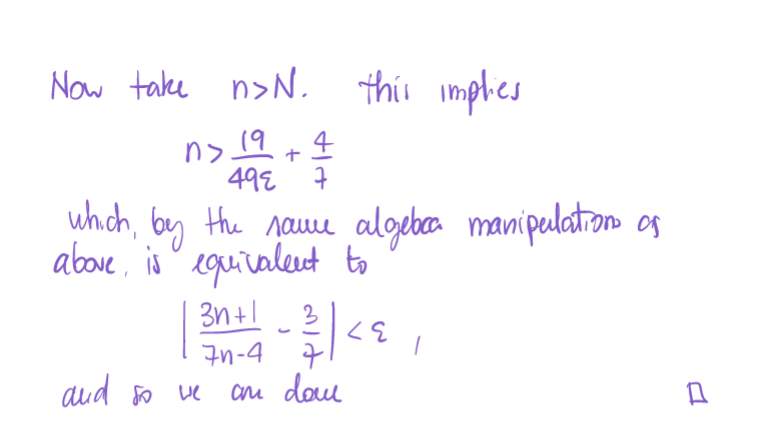 Now take n>N. this implies
n > 19/49ε + 4/7
which, by the same algebra manipulation as
above, is equivalent to
| 3n+1/7n-4 - 3/7 | < ε ,
and so we are done □